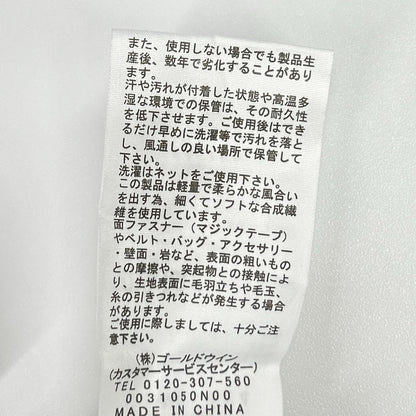 また、使用しない場合でも製品生
産後、数年で劣化することがあり
ます。
汗や汚れが付着した状態や高温多
湿な環境での保管は、その耐久性
を低下させます。ご使用後はでき
るだけ早めに洗濯等で汚れを落と
し、風通しの良い場所で保管して
下さい。
洗濯はネットをご使用下さい。
この製品は軽量で柔らかな風合い
を出す為、細くてソフトな合成繊
維を使用しています。
面ファスナー（マジックテープ）
やベルト・バッグ・アクセサリー
・壁面・岩など、表面の粗いもの
との摩擦や、突起物との接触によ
り、生地表面に毛羽立ちや毛玉、
糸の引きつれなどが発生する場合
があります。
ご使用に際しましては、十分ご注
意下さい。
(株)ゴールドウイン
(カスタマーサービスセンター)
TEL 0120-307-560
0031050N00
MADE IN CHINA